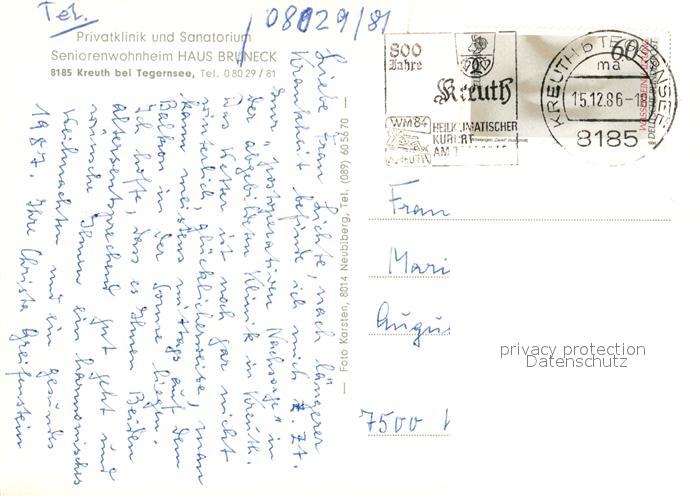 Tel. 08029/81
Privatklinik und Sanatorium
Seniorenwohnheim HAUS BRUNECK
8185 Kreuth bei Tegernsee, Tel. 0 80 29 / 81
Liebe Frau Lichte, nach längerer
Krankheit befinde ich mich z. Zt.
zur "postoperativen Nachsorge" in
der abgebildeten Klinik in Kreuth.
Das Wetter ist noch gar nicht
winterlich, glücklicherweise, man
kann meistens mittags auf dem
Balkon in der Sonne liegen.
Ich hoffe, dass es Ihnen Beiden
altersentsprechend gut geht und
wünsche Ihnen ein harmonisches
Weihnachten und ein gesundes
1987. Ihre Christa Greifenstein
— Foto Karsten, 8014 Neubiberg, Tel. (089) 603670 —
800
Jahre
Kreuth
WM84
KREUTH
HEILKLIMATISCHER
KURORT
AM
KREUTH b TEGERNSEE
ma
15.12.86-1
8185
60
DEUTSCHE BUNDESPOST
Frau
Mari
Augu
7500
privacy protection
Datenschutz